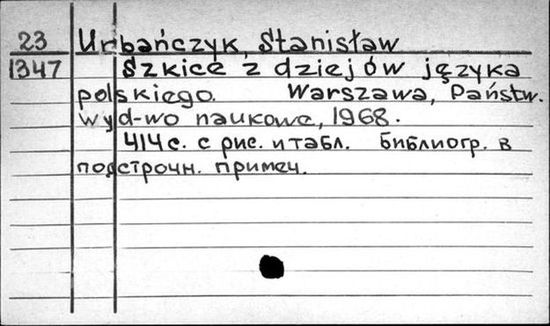 23 Urbańczyk, Stanisław
1347 Szkice z dziejów języka
polskiego. Warszawa, Państw.
wyd-wo naukowe, 1968.
414 с. с рис. и табл. Библиогр. в
подстрочн. примеч.